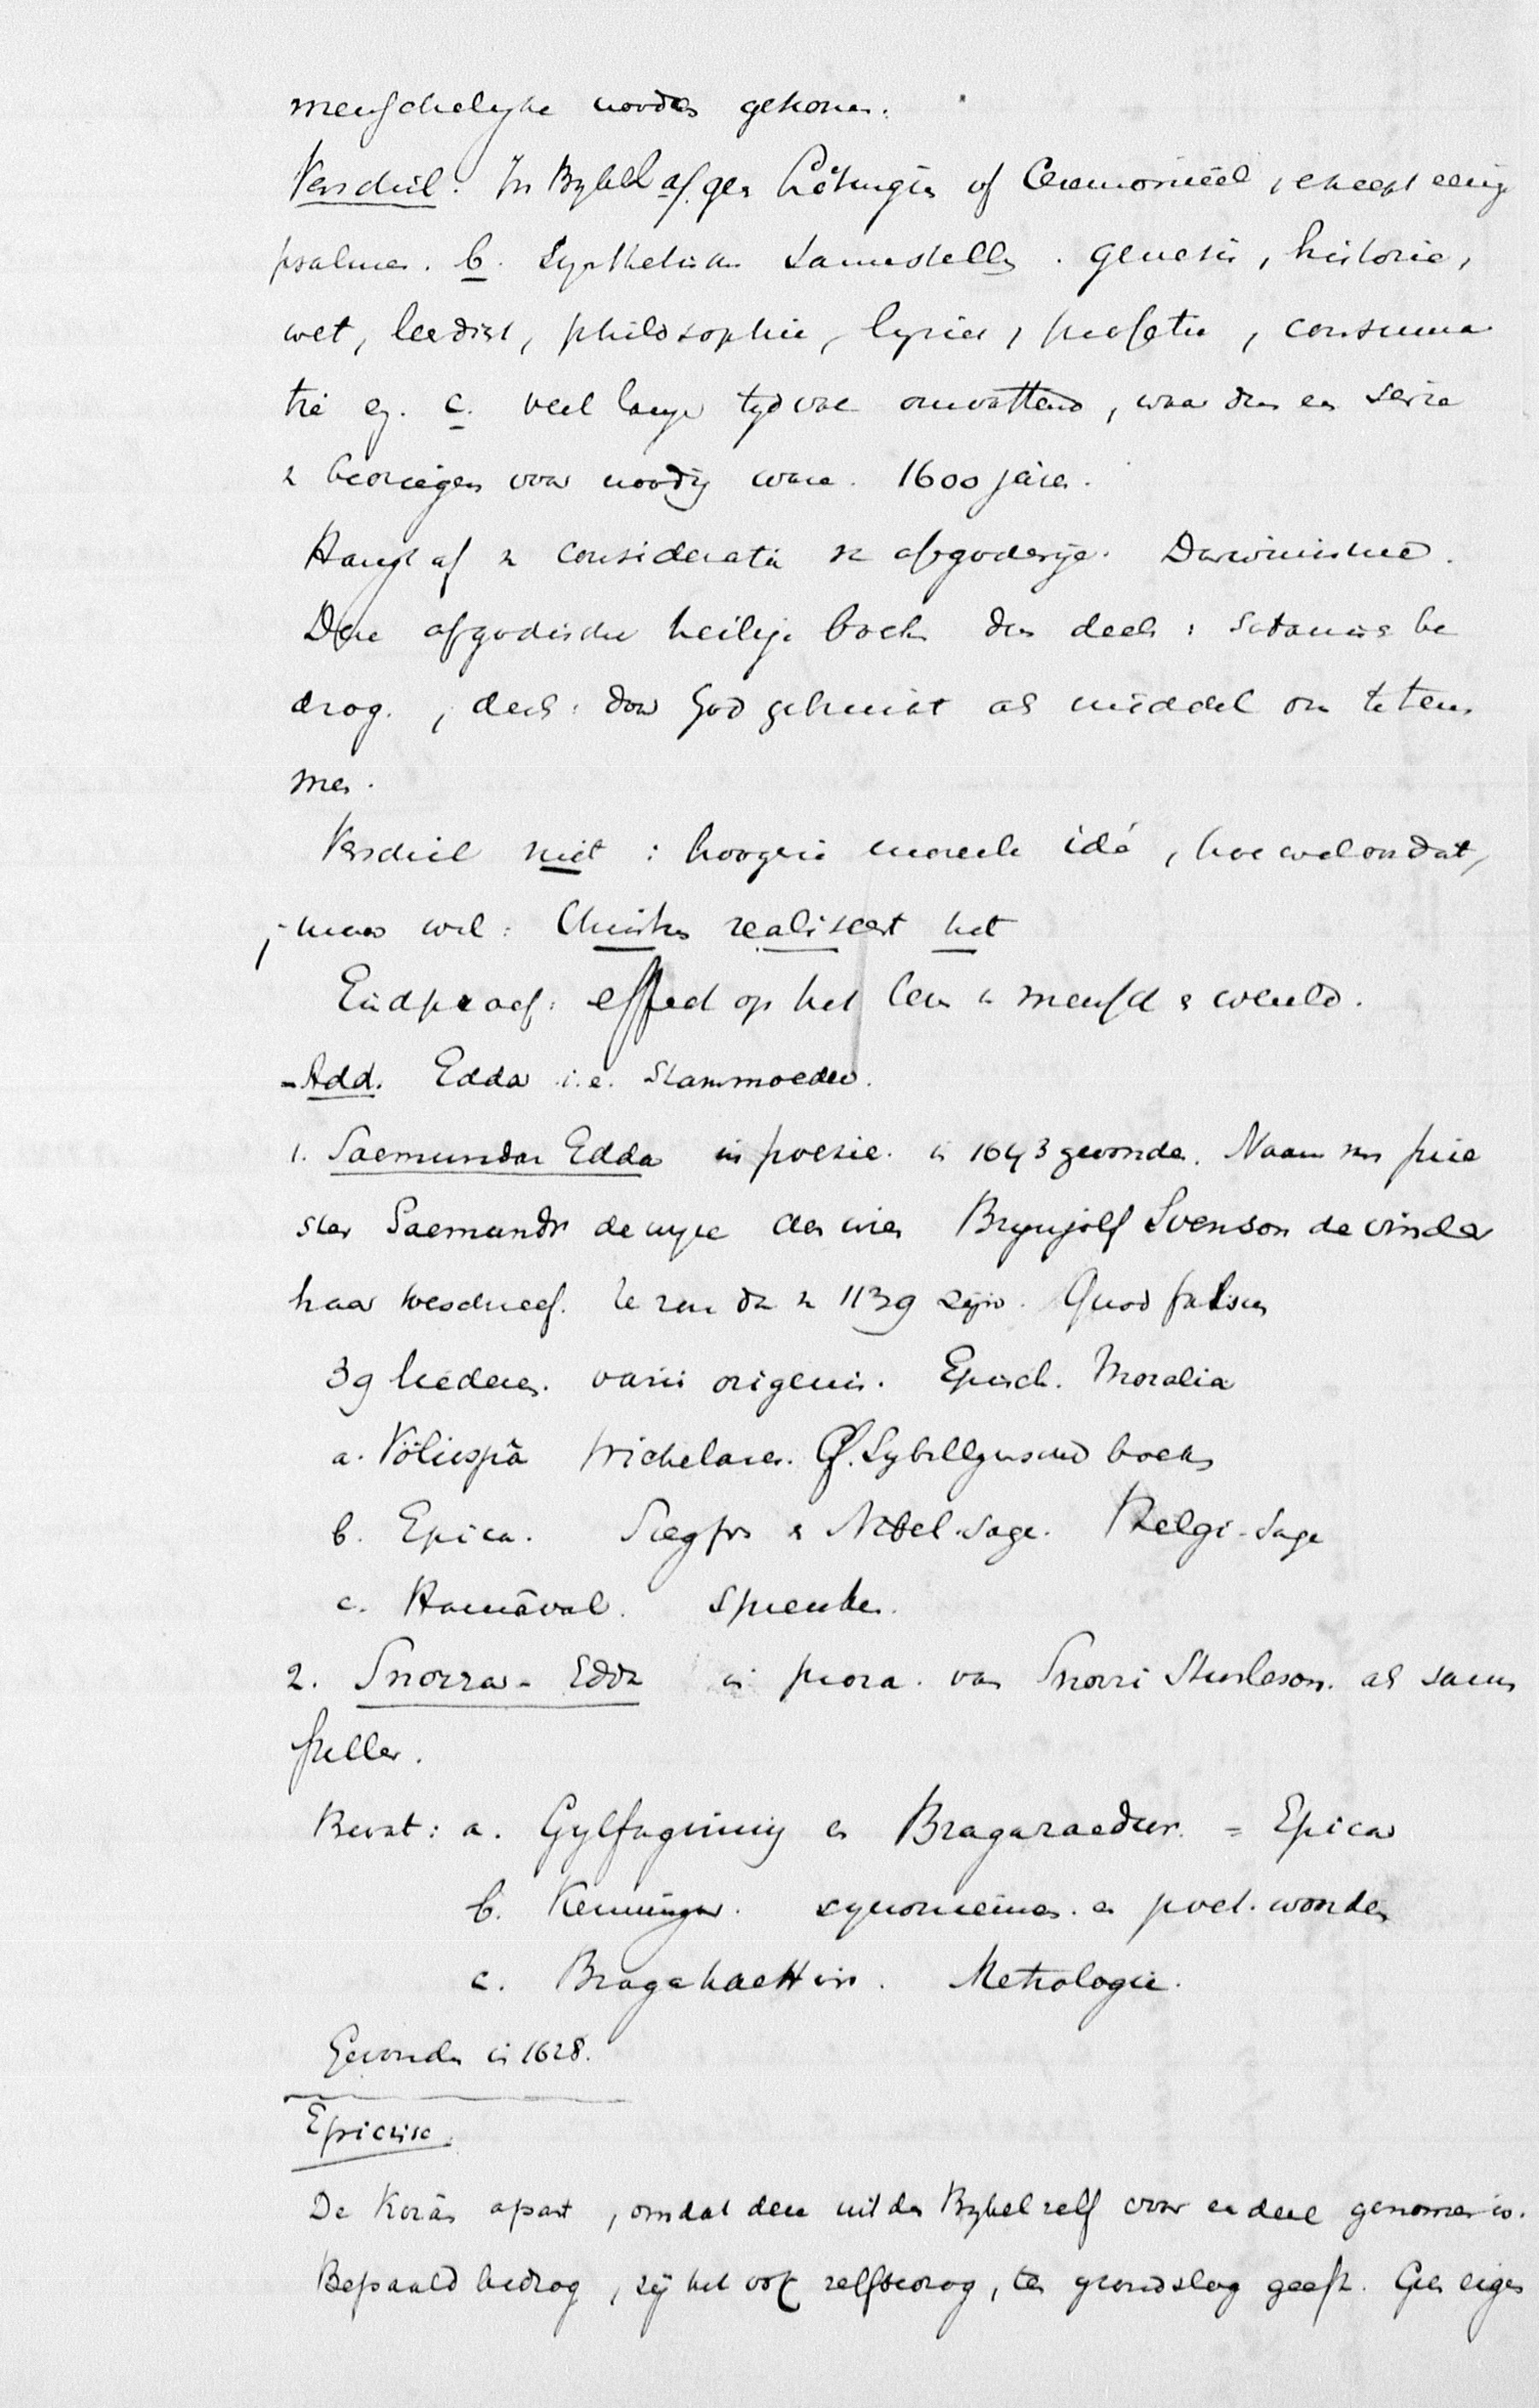 menschelyke noodes gekomen.
Verschil: In Bybel a/. geen of Ceremonieel, except eenige
psalmen. b. Synthetische samenstelling. genesis, historie,
wet, leerdist, philosophie, lyriek, profetie, consumma
tie ez. c. veel lange tydvak omvattend, waar dus een serie
bedriegers voor noodig ware. 1600 jaren.
Hangt af v consideratie vn afgoderye. Darwinisme.
Deze afgodische heilige boeken dus deels: Satanisc be
drog., deels: door God gebruikt als middel om te tem
men.
Verschil niet: hoogere moreele idé, hoewel ondat,
; maar wel: Christus realiseert het
Eindproef: effect op het leven v mensch & wereld.
- Add. Edda i.e. Stammoeder.
1. Saemundar Edda in poesie. in 1643 gevonden. Naam van prie
ster Saemundr de wyze aan wien Brynjolf Svenson de vinder
haar toeschreef. Ze zou dan v 1139 zijn. Quod falsum
39 liederen. varii origenis. Episch. Moralia
a. Völuspâ wichelares. Cf. Sybillynsche boeken
b. Epica. Siegfr & Nibel-sage. Helgi-Sage
c. Hamâval. spreuken.
2. Snorra-Edda in proza. van Snorri Sturleson. als saam
steller.
Bevat: a. Gylfaginnig en Bragaraedur. = Epica
b. Kenningar. synoniemen. en poet. woorden
c. Bragahaettir. Metrologie.
Gevonden in 1628.
Epicrise.
De Korân apart, omdat deze uit den Bybel zelf voor een deel genomen is.
Bepaald bedrog, zij het ook zelfbedrog, ten grondslag geeft. Geen eigen